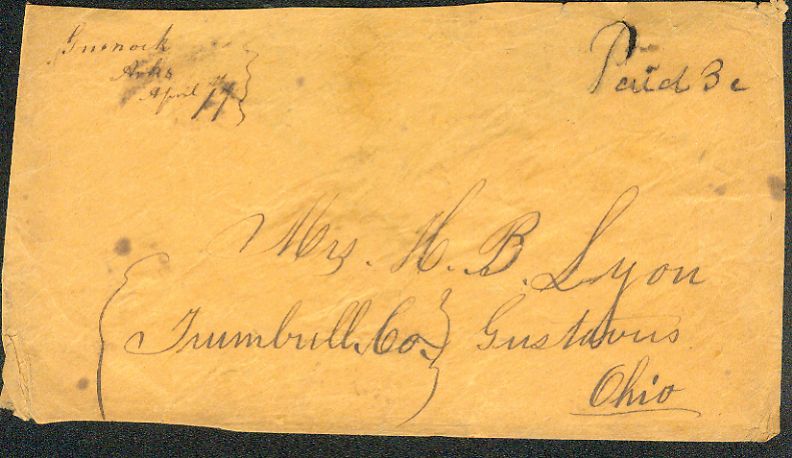 Gurnock
Arks
April 17
Paid 3c
Mrs. H. B. Lyon
Trumbull Co. Gustavus
Ohio